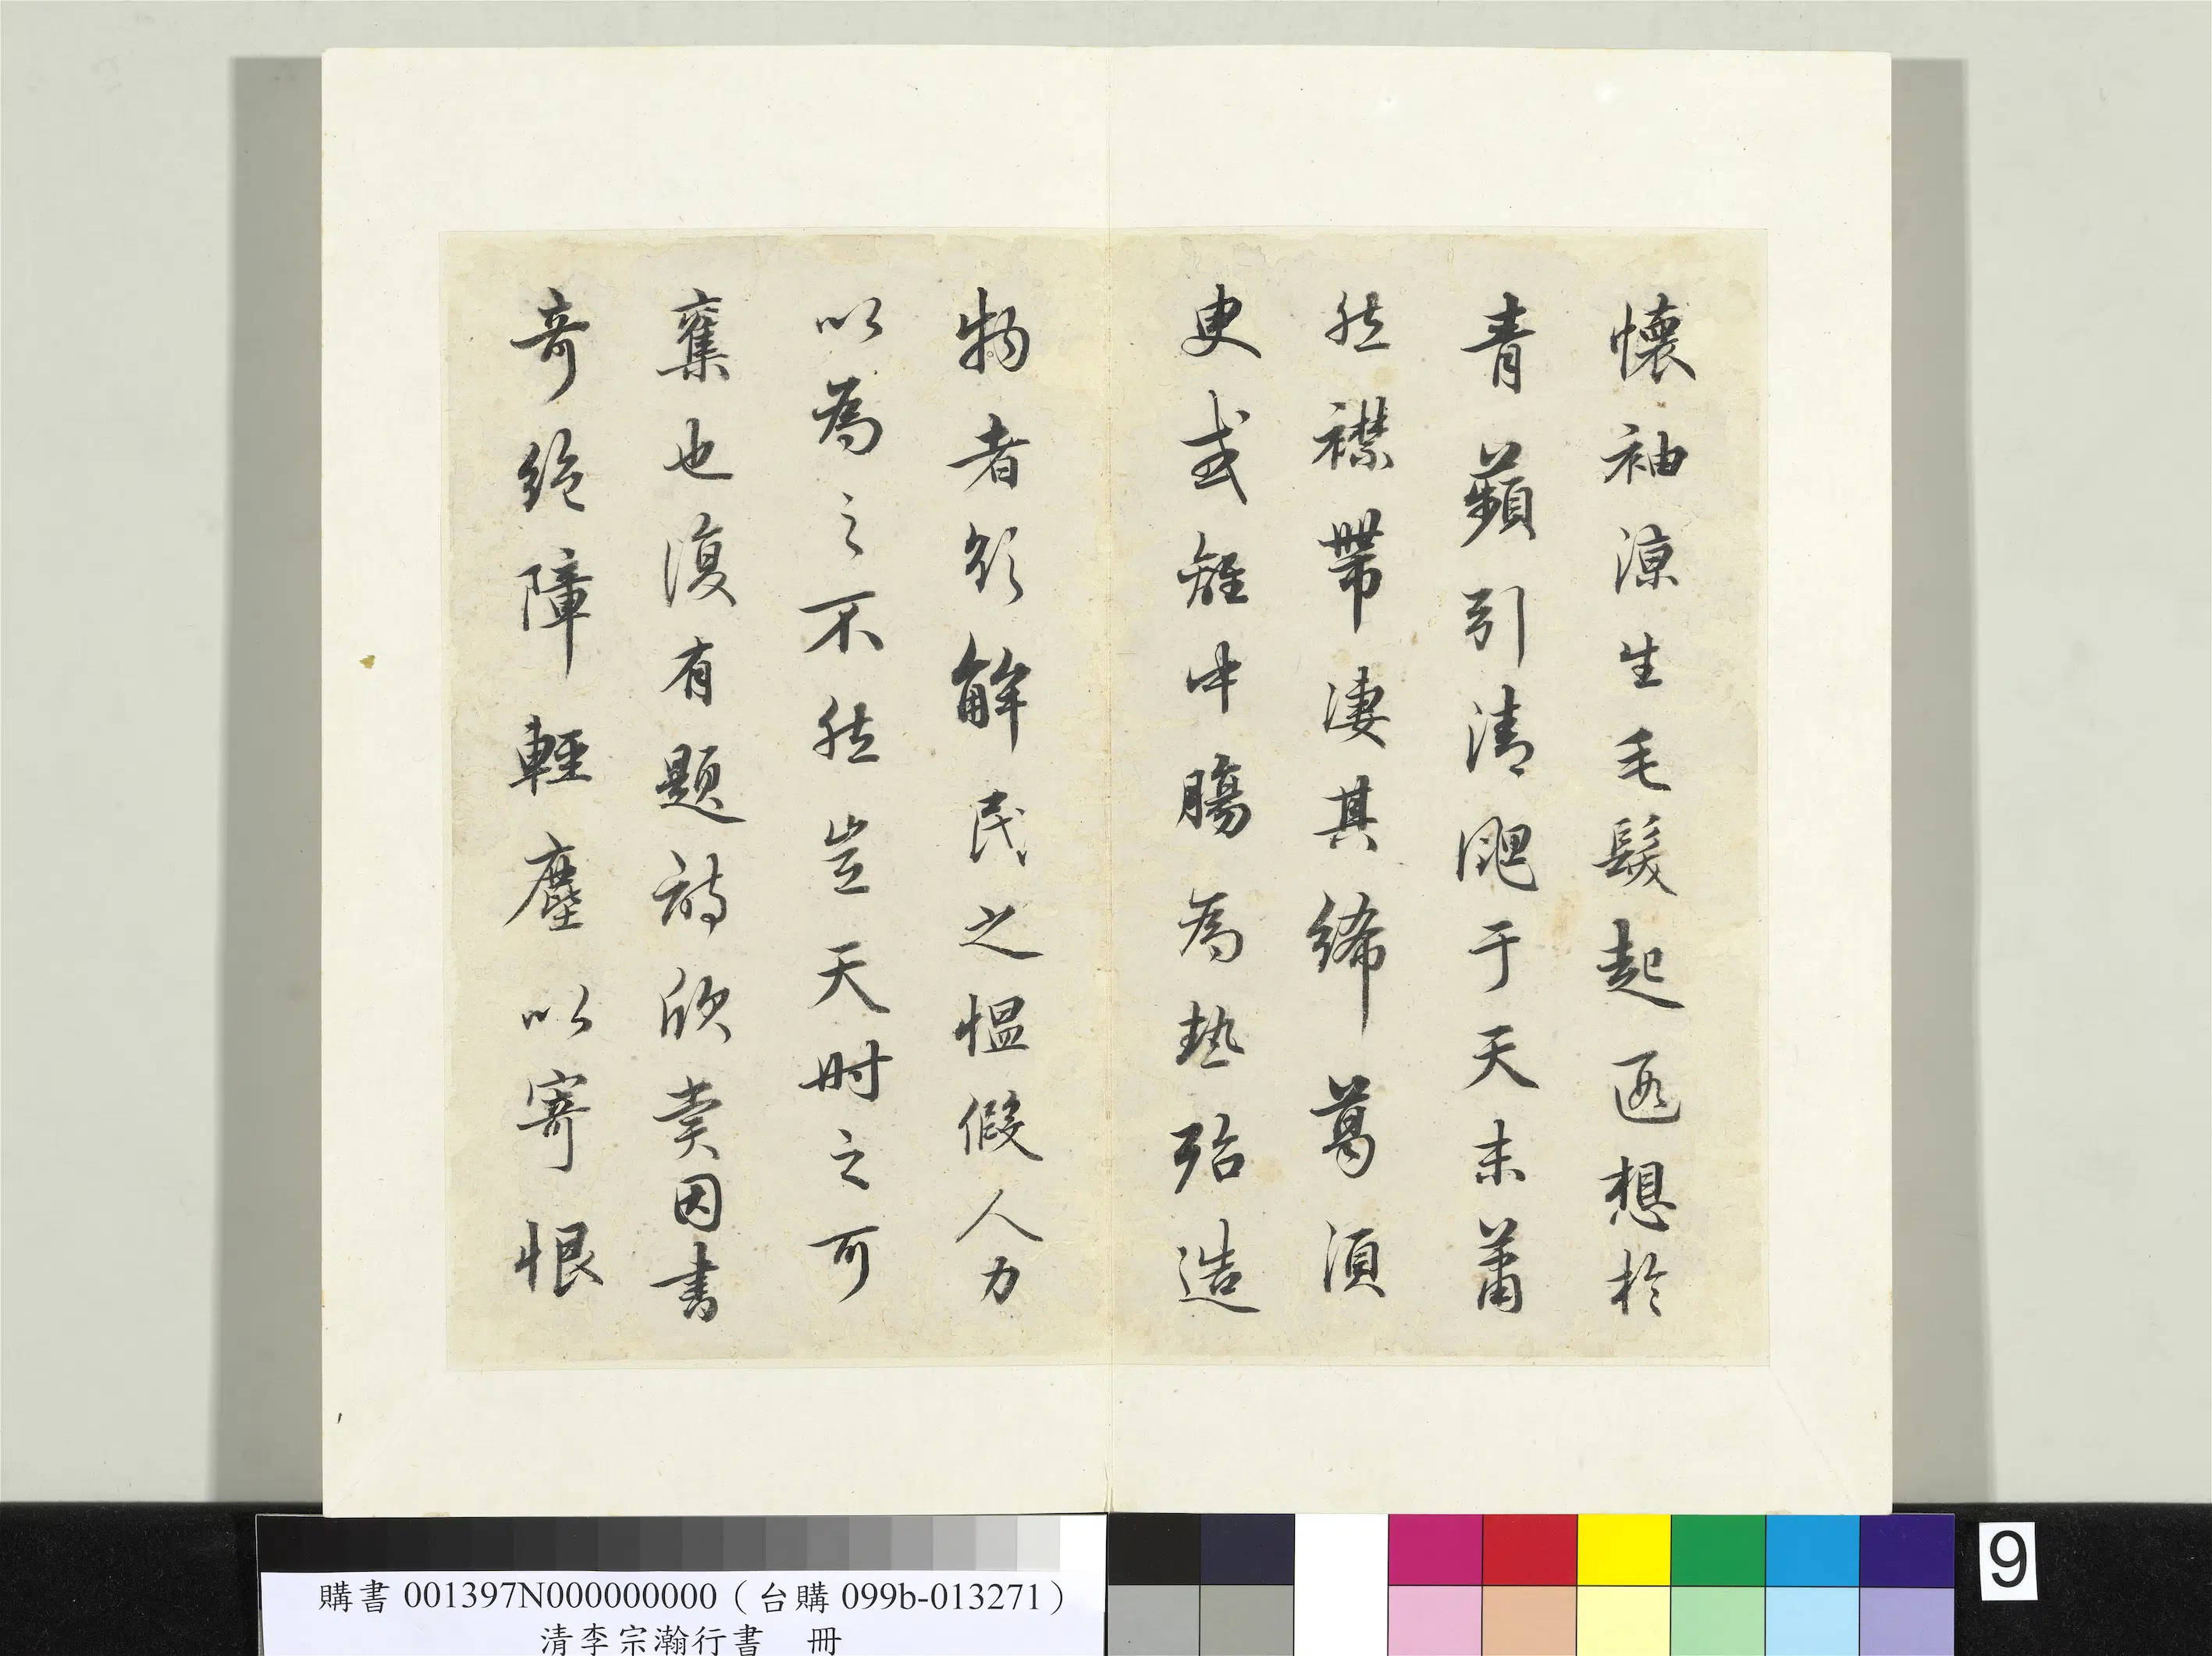 懷袖涼生毛髮起遐想於
青蘋引清颸于天末蕭
然襟帶凄其絺葛須
臾或雖中腸為熱殆造
物者欲解民之慍假人力
以為之不然豈天時之可
奪也復有題詩欣賣因書
奇絕障輕塵以寄恨
購書 001397N000000000（台購 099b-013271）
清李宗瀚行書 冊
9